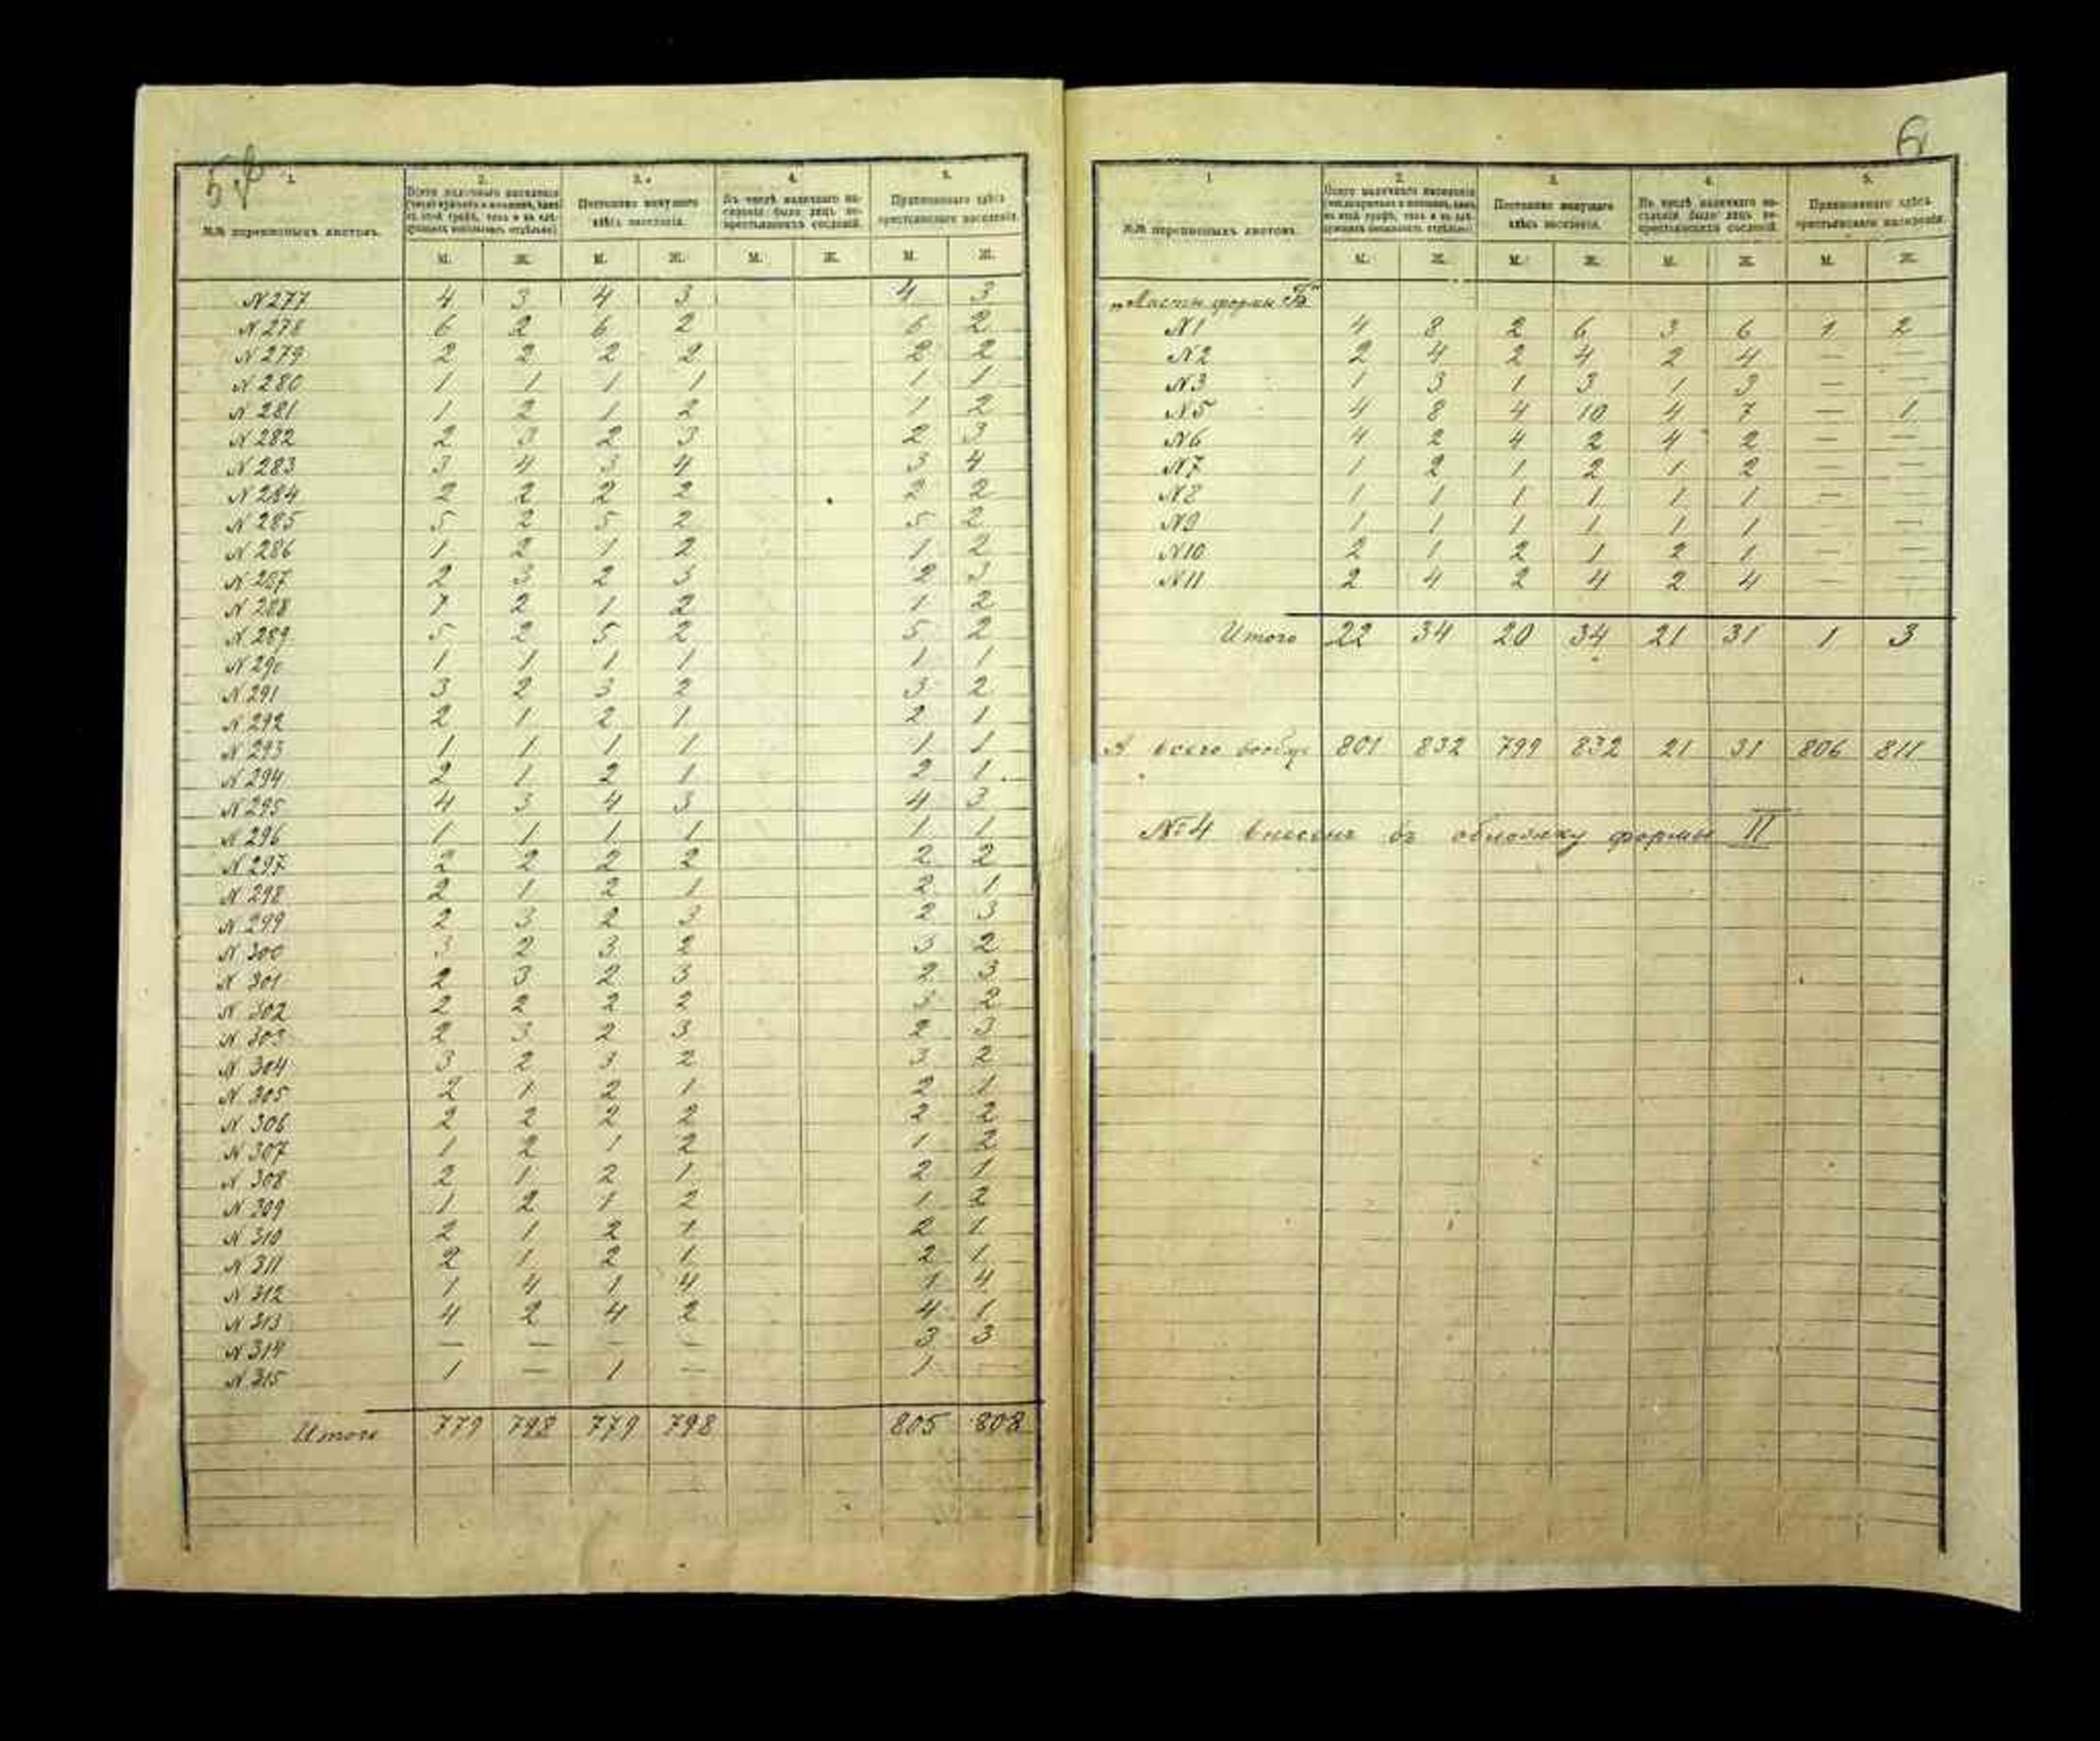 5
1. 2. 3. 4. 5.
№№ переписныхъ листовъ.
Всего наличнаго населенія
Постоянно живущаго здѣсь населенія.
Въ числѣ наличнаго населенія было лицъ не-крестьянскихъ сословій.
Приписаннаго здѣсь крестьянскаго населенія.
М. Ж. М. Ж. М. Ж. М. Ж.
N 277 4 3 4 3 4 3
N 278 6 2 6 2 6 2
N 279 2 2 2 2 2 2
N 280 1 1 1 1 1 1
N 281 1 2 1 2 1 2
N 282 2 3 2 3 2 3
N 283 3 4 3 4 3 4
N 284 2 2 2 2 2 2
N 285 5 2 5 2 5 2
N 286 1 2 1 2 1 2
N 287 2 3 2 3 2 3
N 288 1 2 1 2 1 2
N 289 5 2 5 2 5 2
N 290 1 1 1 1 1 1
N 291 3 2 3 2 3 2
N 292 2 1 2 1 2 1
N 293 1 1 1 1 1 1
N 294 2 1 2 1 2 1
N 295 4 3 4 3 4 3
N 296 1 1 1 1 1 1
N 297 2 2 2 2 2 2
N 298 2 1 2 1 2 1
N 299 2 3 2 3 2 3
N 300 3 2 3 2 3 2
N 301 2 3 2 3 2 3
N 302 2 2 2 2 3 2
N 303 2 3 2 3 2 3
N 304 3 2 3 2 3 2
N 305 2 1 2 1 2 1
N 306 2 2 2 2 2 2
N 307 1 2 1 2 1 2
N 308 2 1 2 1 2 1
N 309 1 2 1 2 1 2
N 310 2 1 2 1 2 1
N 311 2 1 2 1 2 1
N 312 1 4 1 4 1 4
N 313 4 2 4 2 4 1
N 314 — — — — 3 3
N 315 1 — 1 — 1
Итого 779 798 779 798 805 808
6
1 2. 3. 4. 5.
№№ переписныхъ листовъ.
Всего наличнаго населенія
Постоянно живущаго здѣсь населенія.
Въ числѣ наличнаго населенія было лицъ не-крестьянскихъ сословій.
Приписаннаго здѣсь крестьянскаго населенія.
М. Ж. М. Ж. М. Ж. М. Ж.
„Листы формы Б"
N1 4 8 2 6 3 6 1 2
N2 2 4 2 4 2 4 — —
N3 1 3 1 3 1 3 — —
N5 4 8 4 10 4 7 — 1
N6 4 2 4 2 4 2 — —
N7 1 2 1 2 1 2 — —
N8 1 1 1 1 1 1 —
N9 1 1 1 1 1 1 — —
N10 2 1 2 1 2 1 — —
N11 2 4 2 4 2 4 — —
Итого 22 34 20 34 21 31 1 3
А всего вообще 801 832 799 832 21 31 806 811
№4 внесенъ въ обложку формы II